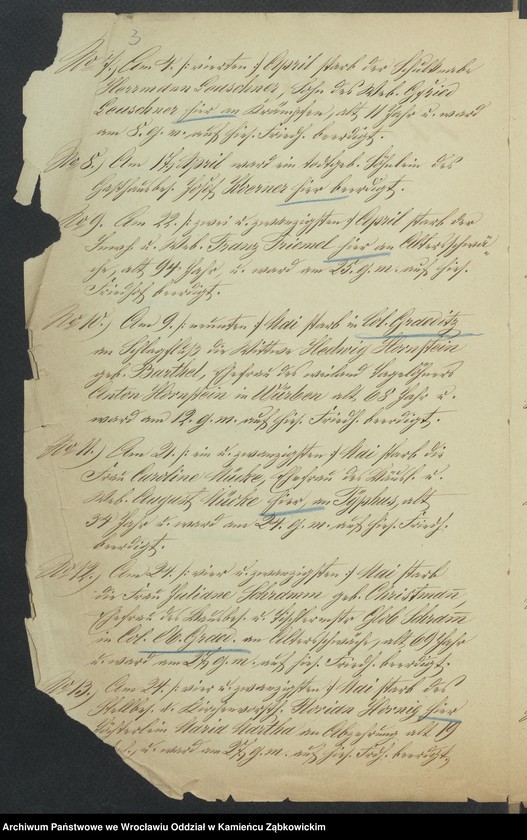 3
No 7., Am 4. |: vierten :| April starb der Schulknabe
Herrmann Leuschner, Sohn des Web.
Leuschner hier an Krämpfen, alt 11 Jahr u. ward
am 8. ej. m. auf hies. Friedh. beerdigt.
No 8.) Am 17. April ward ein todtgeb. Söhnlein des
Gasthausbes. Josef Werner hier beerdigt.
No 9. Am 22. |: zwei u. zwanzigsten :| April starb der
Inwoh. u. Web. Franz Friemel hier an Altersschwä-
che, alt 94 Jahr, u. ward am 25. ej. m. auf hies.
Friedhof beerdigt.
No 10.) Am 9. |: neunten :| Mai starb in Col. Graeditz
an Schlagfluß die Wittwe Hedwig Hornstein
geb. Barthel, Ehefrau des weiland Tagelöhners
Anton Hornstein in Würben alt 68 Jahr u.
ward am 12. ej. m. auf hies. Friedh. beerdigt.
No 11.) Am 21. |: ein u. zwanzigsten :| Mai starb die
Frau Caroline Mücke, Ehefrau des Häusl. u.
Web. August Mücke hier, an Typhus, alt
34 Jahr u. ward am 24. ej. m. auf hies. Friedh.
beerdigt.
No 12.) Am 24. |: vier u. zwanzigsten :| Mai starb
die Frau Juliane Schramm geb. Christmañ,
Ehefrau des Hausbes. u. Tischlermstr Glob Schram̃
in Col. Ob. Grad. an Altersschwäche, alt 69 Jahr
u. ward am 27. ej. m. auf hies. Friedh. beerdigt.
No 13., Am 24. |: vier u. zwanzigsten :| Mai starb des
Stellbes. u. Kirchenvorsteh. Florian Hornig hier
Töchterlein Maria Martha an Abzehrung alt 19
u. ward am 27. ej. m. auf hies. Frdh. beerdigt.
Archiwum Państwowe we Wrocławiu Oddział w Kamieńcu Ząbkowickim